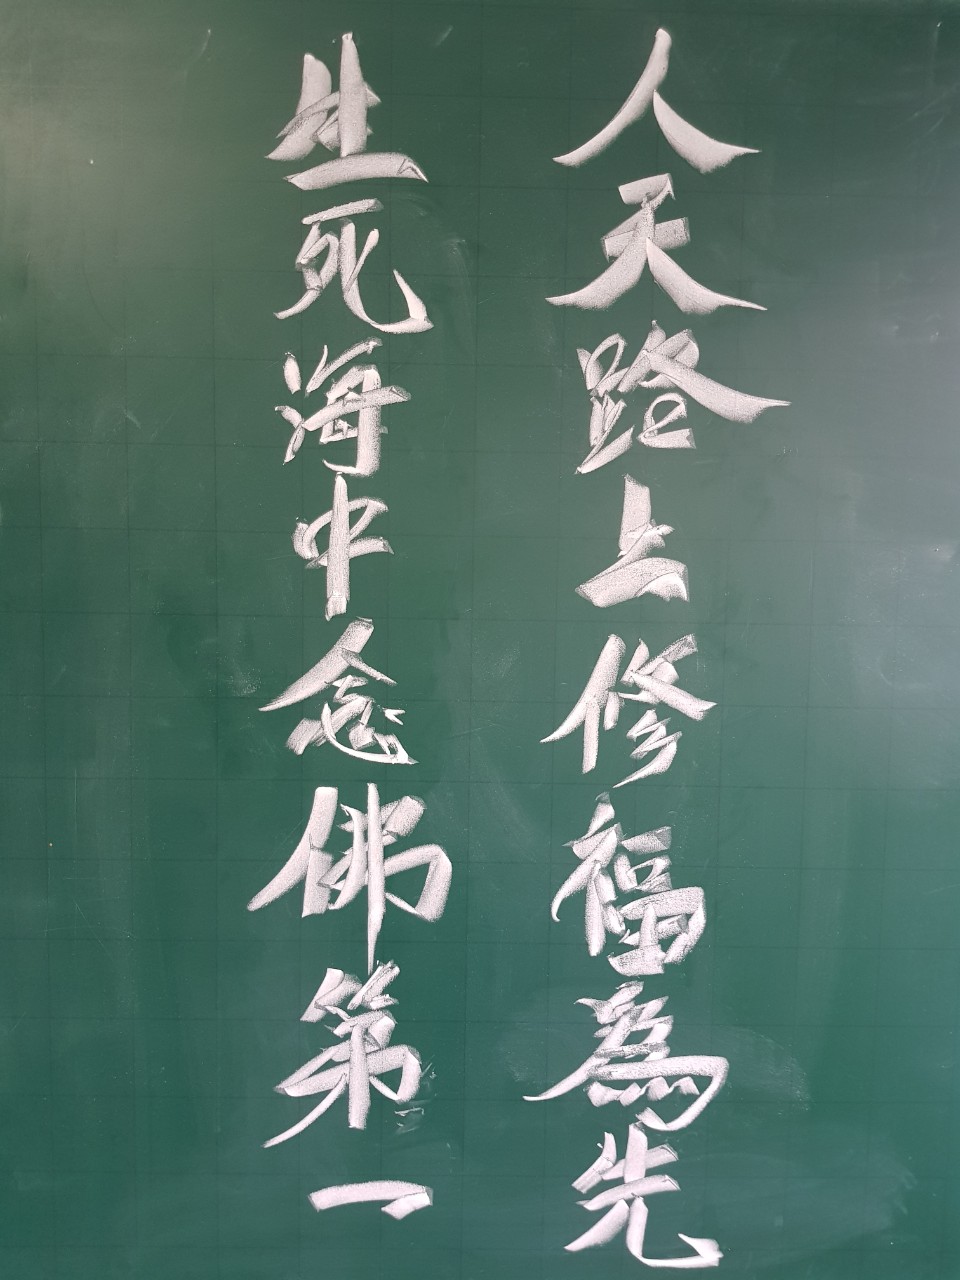 人天路上修福為先
生死海中念佛第一